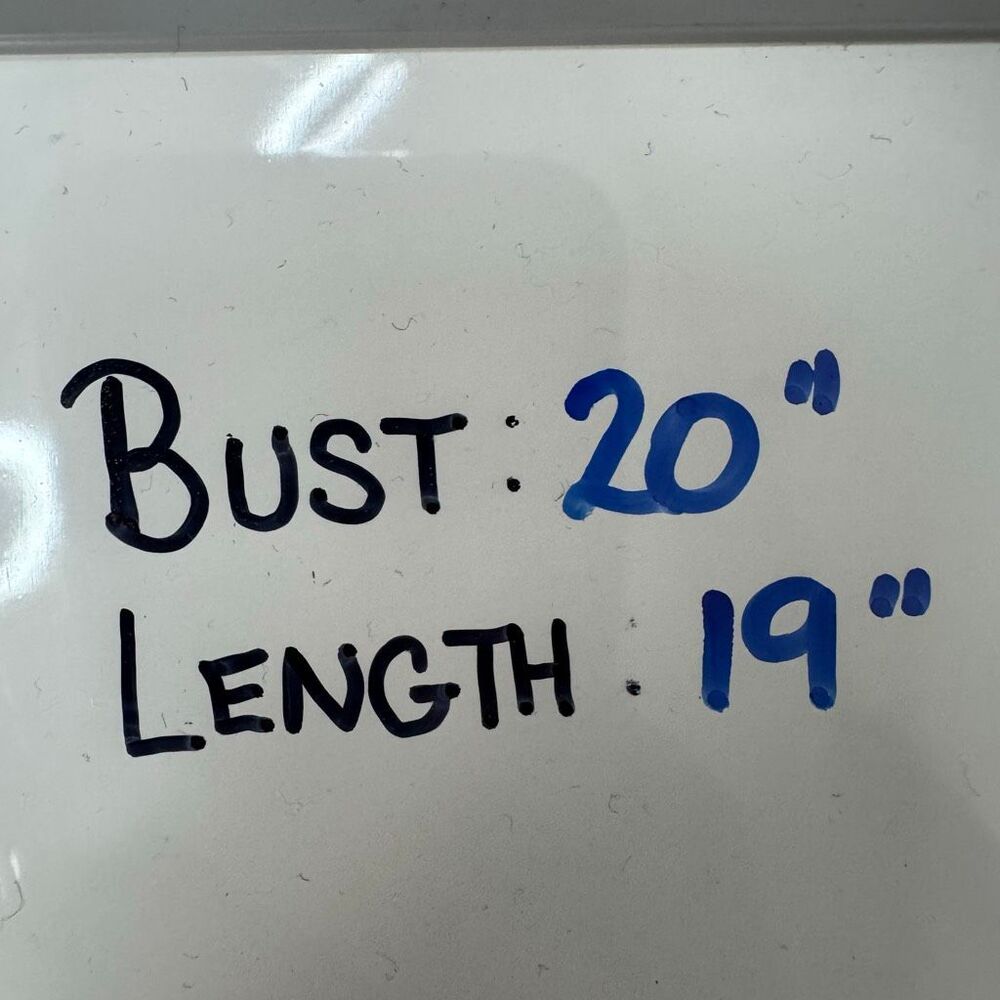 BUST: 20"
LENGTH: 19"